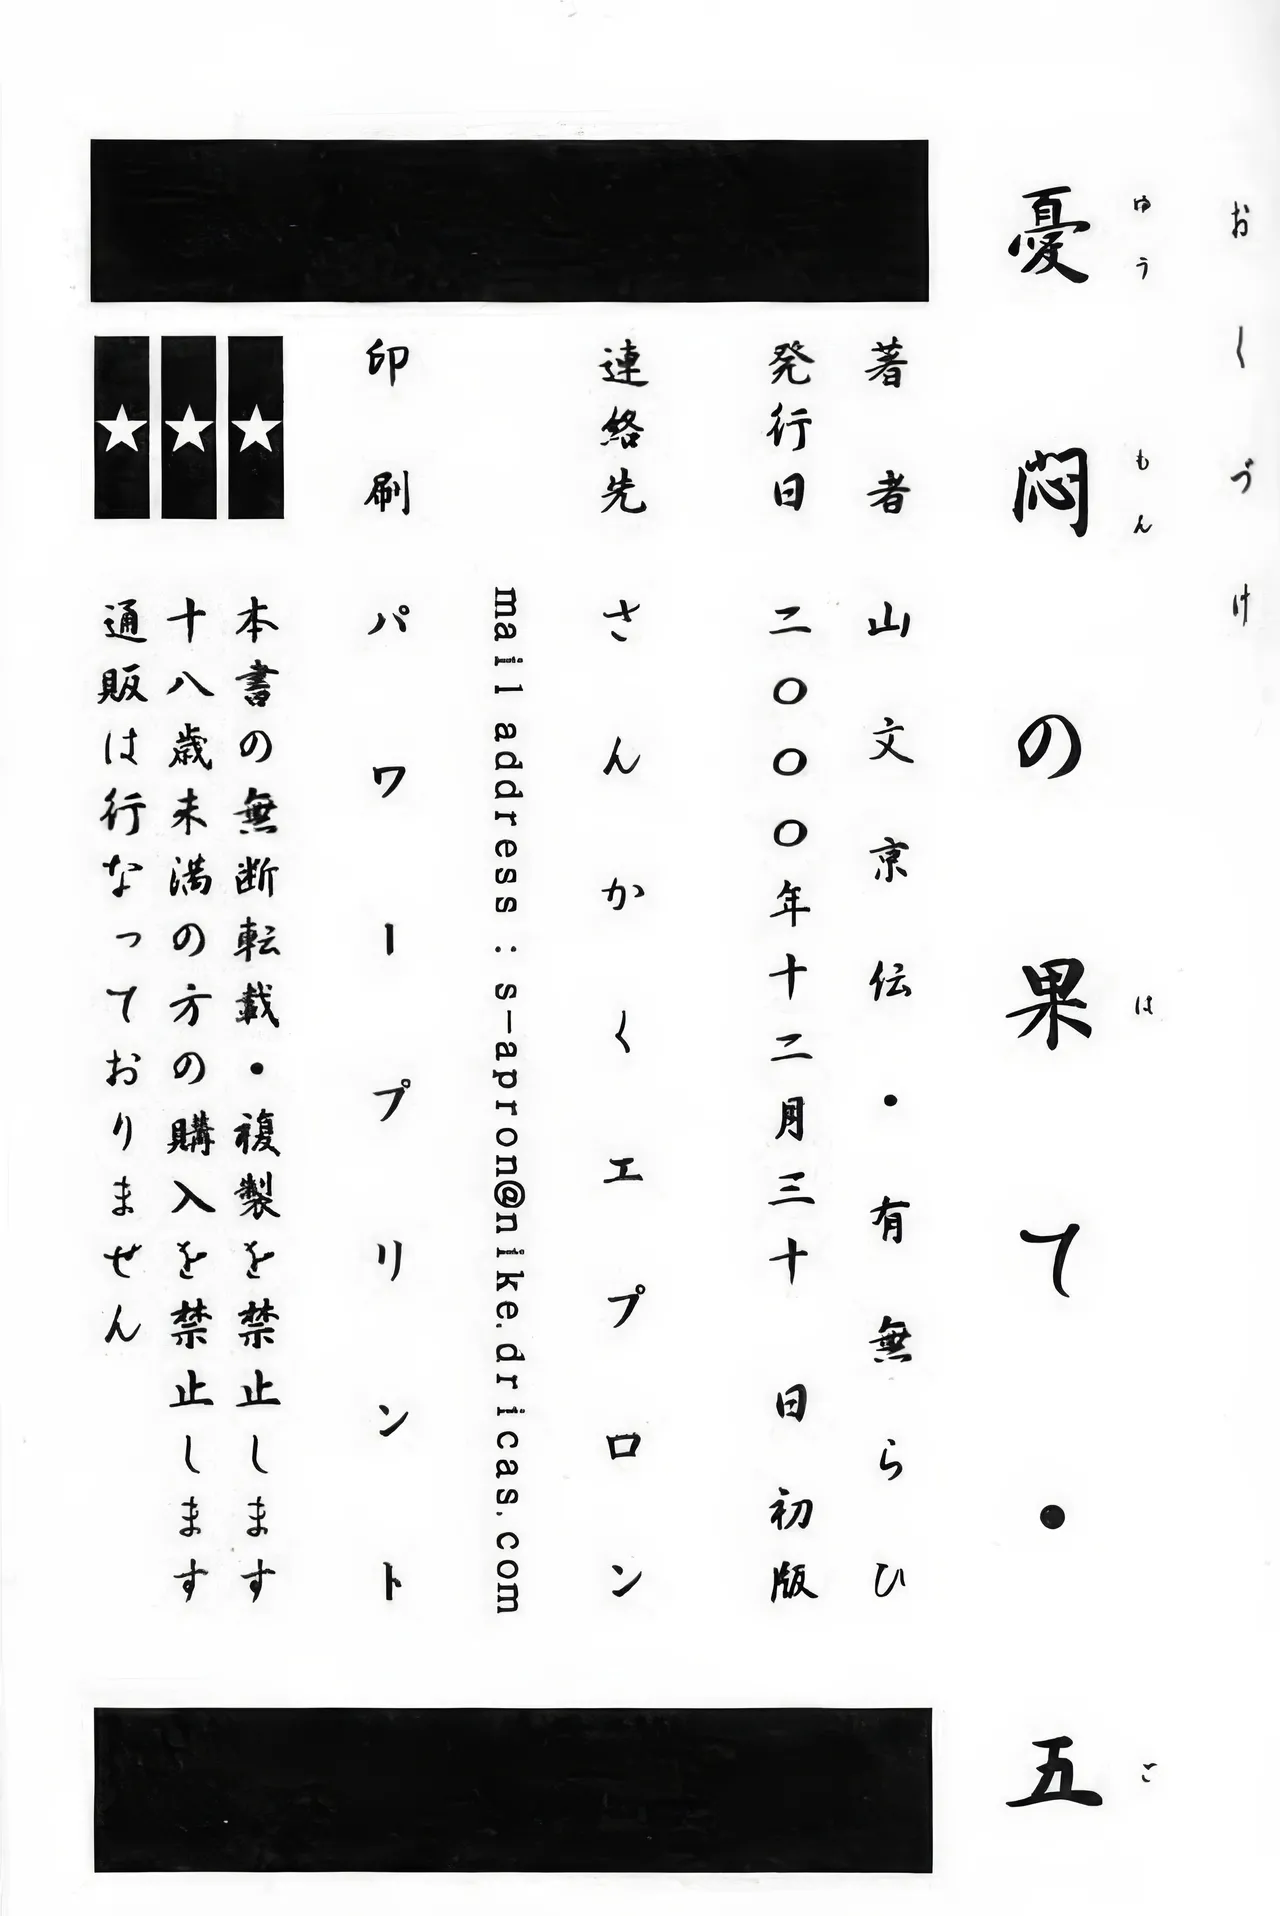 おくづけ
憂悶の果て・五
ゆうもん は ご
著者 山文京伝・有無らひ
発行日 二〇〇〇年十二月三十日初版
連絡先 さんかくエプロン
mail address : s-apron@nike.dricas.com
印刷 パワープリント
★ 本書の無断転載・複製を禁止します
★ 十八歳未満の方の購入を禁止します
★ 通販は行なっておりません